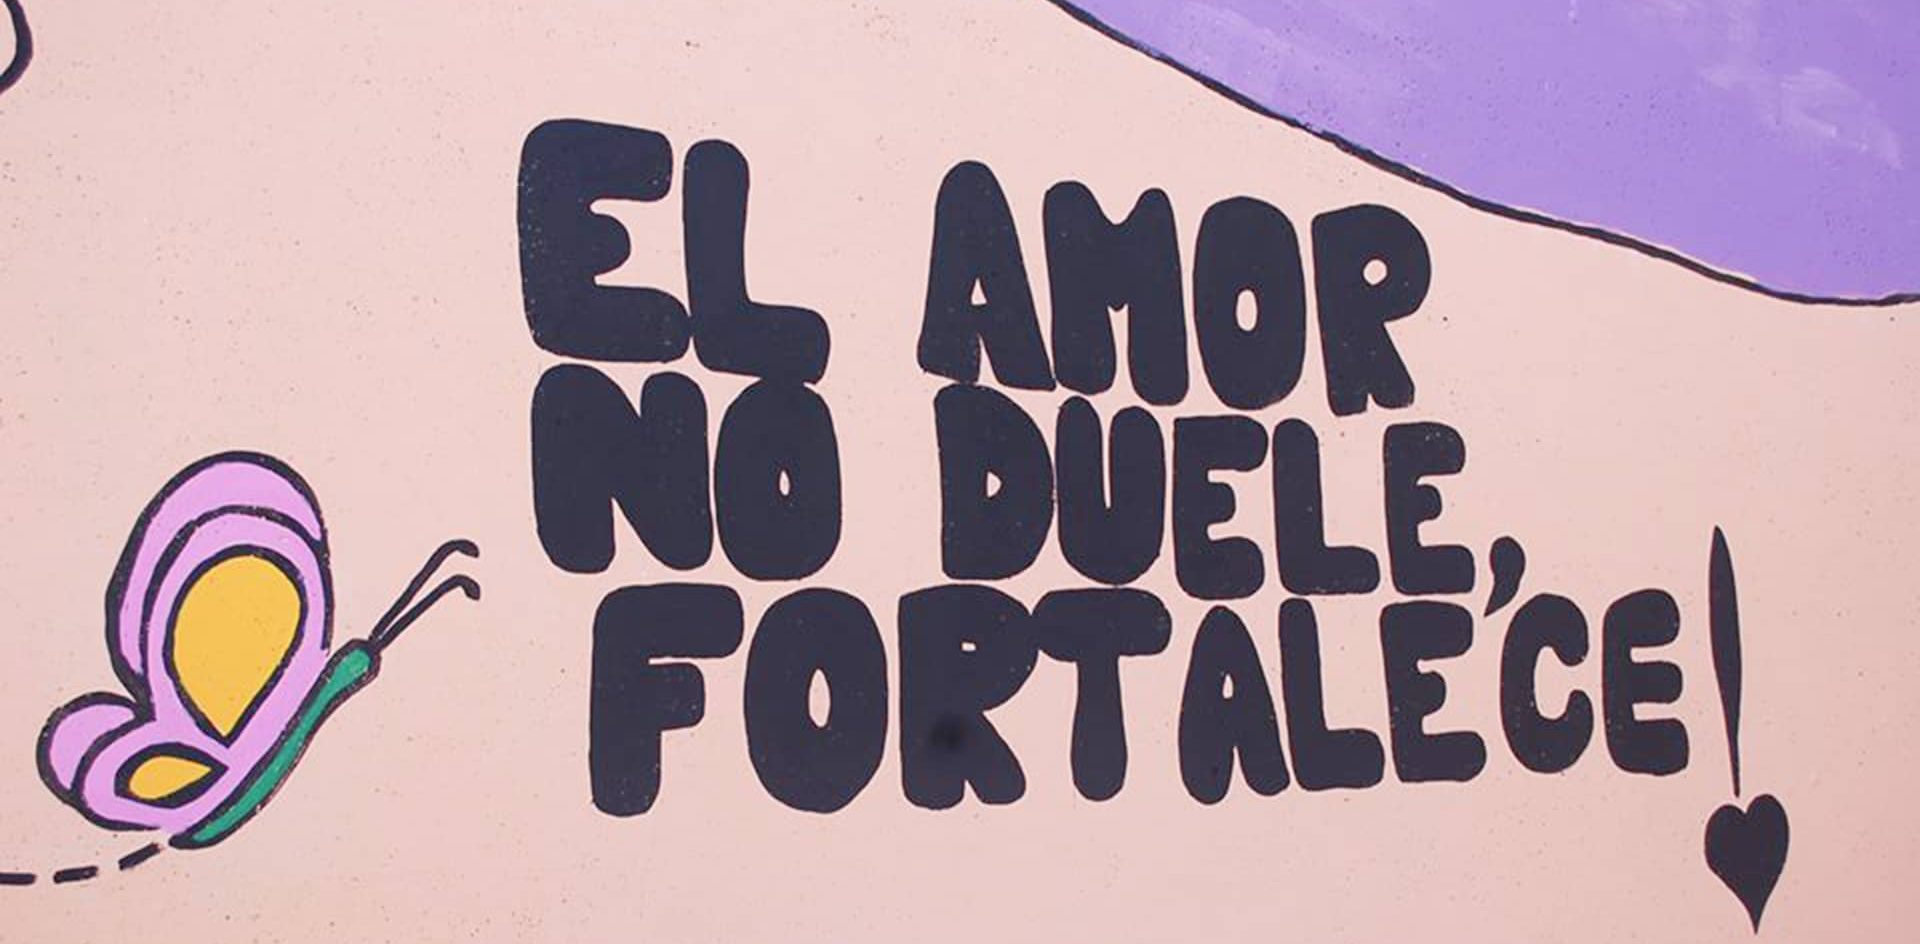 EL AMOR
NO DUELE,
FORTALECE!